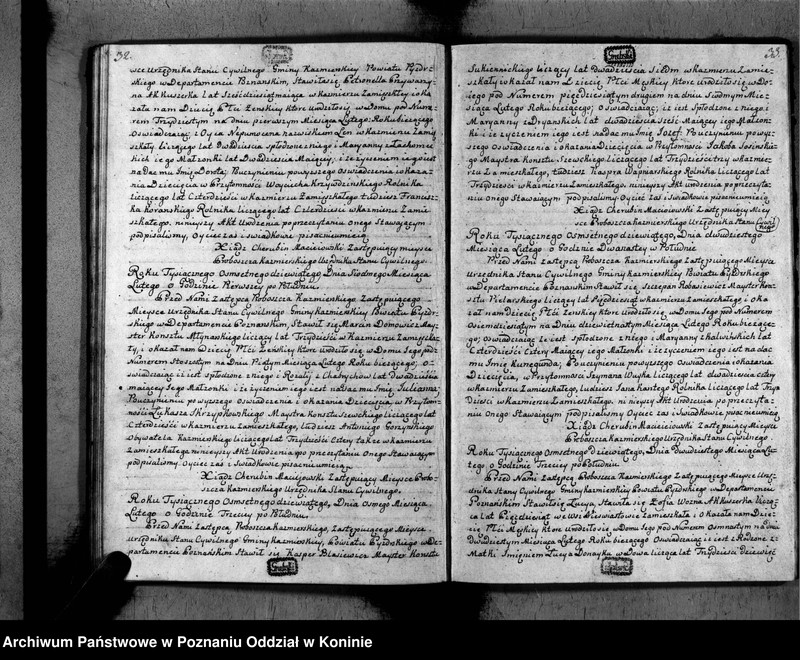 32.
sce Urzędnika Stanu Cywilnego Gminy Kazmierskiey Powiatu Pyzdr-
skiego w Departamencie Poznanskim, Stawiła się Petronella Przywarzy-
na Akkuszerka Lat Sześćdziesiąt maiąca w Kazmierzu Zamieszkały i oka
zała nam Dziecię Płci Żenskiey ktore urodziło się w Domu pod Nume-
rem Trzydziestym na dniu pierwszym Miesiąca Lutego Roku bieżącego
Oświadczaiąc z Oyca Nepomucena nazwiskiem Len w Kazmierzu Zamię
szkały liczącego lat Dwadzieścia spłodzone z niego i Maryanny z Lachowic
kich iego Małżonki lat Dwadzieścia Maiącey, i że życzeniem iego iest
nadać mu Imię Dorota; Po uczynieniu powyższego Oświadczenia i okaza-
nia Dziecięcia w Przytomności Woyciecha Krzywdzinskiego Rolnika
liczącego lat Czterdzieści w Kazmierzu Zamieszkałego tudzież Francisz-
ka Koranskiego Rolnika liczącego lat Czterdzieści w Kazmierzu Zamie
szkałego, ninieyszy Akt Urodzenia po przeczytaniu Onego Stawaiącym
podpisaliśmy, Oyciec zaś i świadkowie pisać nie umieią
Xiądz Cherubin Macieiowski Zastępuiący mieysce
Proboszcza Kazmierskiego Urzędnika Stanu Cywilnego.
Roku Tysiącznego Osmsetnego dziewiątego, Dnia Siodmego Miesiąca
Lutego o Godzinie Pierwszey po Południu.
Przed Nami Zastępcą Proboszcza Kazmierskiego Zastępuiącego
Mieysce Urzędnika Stanu Cywilnego Gminy Kazmierskiey Powiatu Pyzdr-
skiego w Departamencie Poznanskim, Stawił się Marcin Domowicz May-
ster Konsztu Młynarskiego liczący lat Trzydzieści w Kazmierzu Zamieszka-
ły, i okazał nam Dziecię Płci Żeńskiey ktore urodziło się w Domu iego pod
Numerem Stoszostym na Dniu Piątym Miesiąca Lutego Roku bieżącego; o-
świadczaiąc iż iest spłodzone z niego i Rozalij z Chabrychow lat Dwadzieścia
maiącey Iego Małżonki i że życzeniem iego iest nadać mu Imię Julianna;
Po uczynieniu powyższego oświadczenia i okazania Dziecięcia, w Przytom-
ności Łukasza Skrzypkowskiego Maystra Konsztu Szewskiego liczącego lat
Czterdzieści w Kazmierzu Zamieszkałego, tudzież Antoniego Gorzynskiego
Obywatela Kazmierskiego liczącego lat Trydzieści Cztery także w Kazmierzu
Zamieszkałego ninieyszy Akt Urodzenia po przeczytaniu Onego Stawaiącym
podpisaliśmy. Oyciec zaś i Swiadkowie pisać nie umieią.
Xiądz Cherubin Macieyowski Zastępuiący Mieysce Probo-
szcza Kazmierskiego Urzędnika Stanu Cywilnego.
Roku Tysiącznego Osmsetnego dziewiątego, Dnia Osmego Miesiąca
Lutego o Godzinie Trzeciey po Południu.
Przed Nami Zastępcą Proboszcza Kazmierskiego, Zastępuiącego Mieysce
Urzędnika Stanu Cywilnego Gminy Kazmierskiey, Powiatu Pyzdrskiego w De-
partamencie Poznańskim Stawił się Kasper Błasiewicz Mayster Konsztu
33.
Sukiennickiego liczący lat Dwadzieścia Siedm w Kazmierzu Zamie-
szkały i okazał nam Dziecię Płci Męskiey ktore urodziło się w Do-
iego pod Numerem pięćdziesiąt drugiem na dniu Siodmym Mie-
siąca Lutego Roku bieżącego; Oświadczaiąc, iż iest Spłodzone z niego i
Maryanny z Dryanskich lat dwadzieścia sześć Maiącey iego Małżon-
ki i że życzeniem iego iest nadać mu Imię Jozef. Po uczynieniu powy-
szego Oświadczenia i okazania Dziecięcia w Przytomności Jakuba Josinskie-
go Maystra Konsztu Szewskiego liczącego lat Trydzieści trzy w Kazmie-
rzu Zamieszkałego, tudzież Kaspra Wapniarskiego Rolnika liczącego lat
Trydzieści w Kazmierzu Zamieszkałego. ninieyszy Akt urodzenia po przeczyta-
niu Onego Stawaiącym podpisaliśmy Oyciec zaś i świadkowie pisać nie umieią
Xiądz Cherubin Macieiowski Zastępuiący Miey
sce Proboszcza Kazmierskiego Urzędnika Stanu Cywil
nego
Roku Tysiącznego Osmsetnego dziewiątego, Dnia dwudziestego
Miesiąca Lutego o Godzinie Dwanastey w Południe
Przed Nami Zastępcą Proboszcza Kazmierskiego Zastępuiącego Mieysce
Urzędnika Stanu Cywilnego Gminy Kazmierskiey Powiatu Pyzdrskiego
w Departamencie Poznanskim Stawił się Szczepan Robasiewicz Mayster Kon-
sztu liczący lat Pięćdziesiąt w Kazmierzu Zamieszkałego i oka
zał nam Dziecię Płci Żenskiey ktore urodziło się w Domu iego pod Numerem
Osiemdziesiątym na Dniu dziewiętnastym Miesiąca Lutego Roku bieżące-
go; Oświadczaiąc że iest spłodzone z niego i Maryanny z Kalwiskich lat
Czterdzieści Cztery Maiącey iego Małżonki i że życzeniem iego iest nadać
mu Imie Kunegunda; Po uczynieniu powyższego oświadczenia i okazania
Dziecięcia, w Przytomności Szymana Wuyka liczącego lat dwadzieścia cztery
w Kazmierzu Zamieszkałego, tudzież Jana Kantego Rolnika liczącego lat Trzy
Dzieści w Kazmierzu Zamieszkałego. ninieyszy Akt Urodzenia po przeczyta-
niu Onego Stawaiącym podpisaliśmy Oyciec zaś i Swiadkowie pisać nie umieią
Xiądz Cherubin Macieiowski Zastępuiący Mieysce
Proboszcza Kazmierskiego Urzędnika Stanu Cywilnego
Roku Tysiącznego Osmsetnego dziewiątego, Dnia Dwudziestego Miesiąca Lu-
tego o Godzinie Trzeciey po Południu.
Przed Nami Zastępcą Proboszcza Kazmierskiego Zastępuiącego Mieysce Urzę-
dnika Stanu Cywilnego Gminy Kazmierskiey Powiatu Pyzdrskiego w Departamencie
Poznańskim Stawiła się Zofia Wozna Akkuszerka licząca
lat Pięćdziesiąt we Wsi Zamieszkała i okazała nam Dzie-
cię Płci Męskiey ktore urodziło się w Domu iego pod Numerem Osmnastym na Dniu
Dwudziestym Miesiąca Lutego Roku bieżącego Oświadczaiąc iż iest z Rodzone z
Matki Imieniem Łucya Donayka Wdowa licząca lat Trydzieści dziewięć
Archiwum Państwowe w Poznaniu Oddział w Koninie